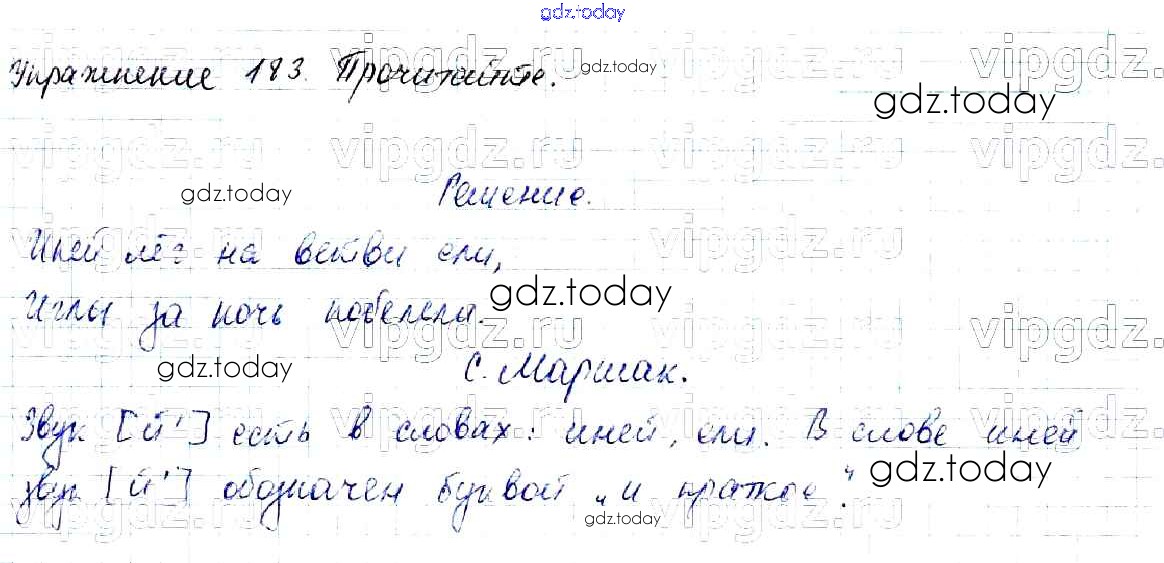 gdz.today
Упражнение 183. Прочитайте. gdz.today
gdz.today
vipgdz.ru vipgdz.ru vipgdz.ru vipgdz.ru
gdz.today Решение.
Иней лёг на ветви ели,
Иглы за ночь побелели. gdz.today
gdz.today С. Маршак.
Звук [й'] есть в словах: иней, ели. В слове иней
звук [й'] обозначен буквой „и краткое". gdz.today
gdz.today